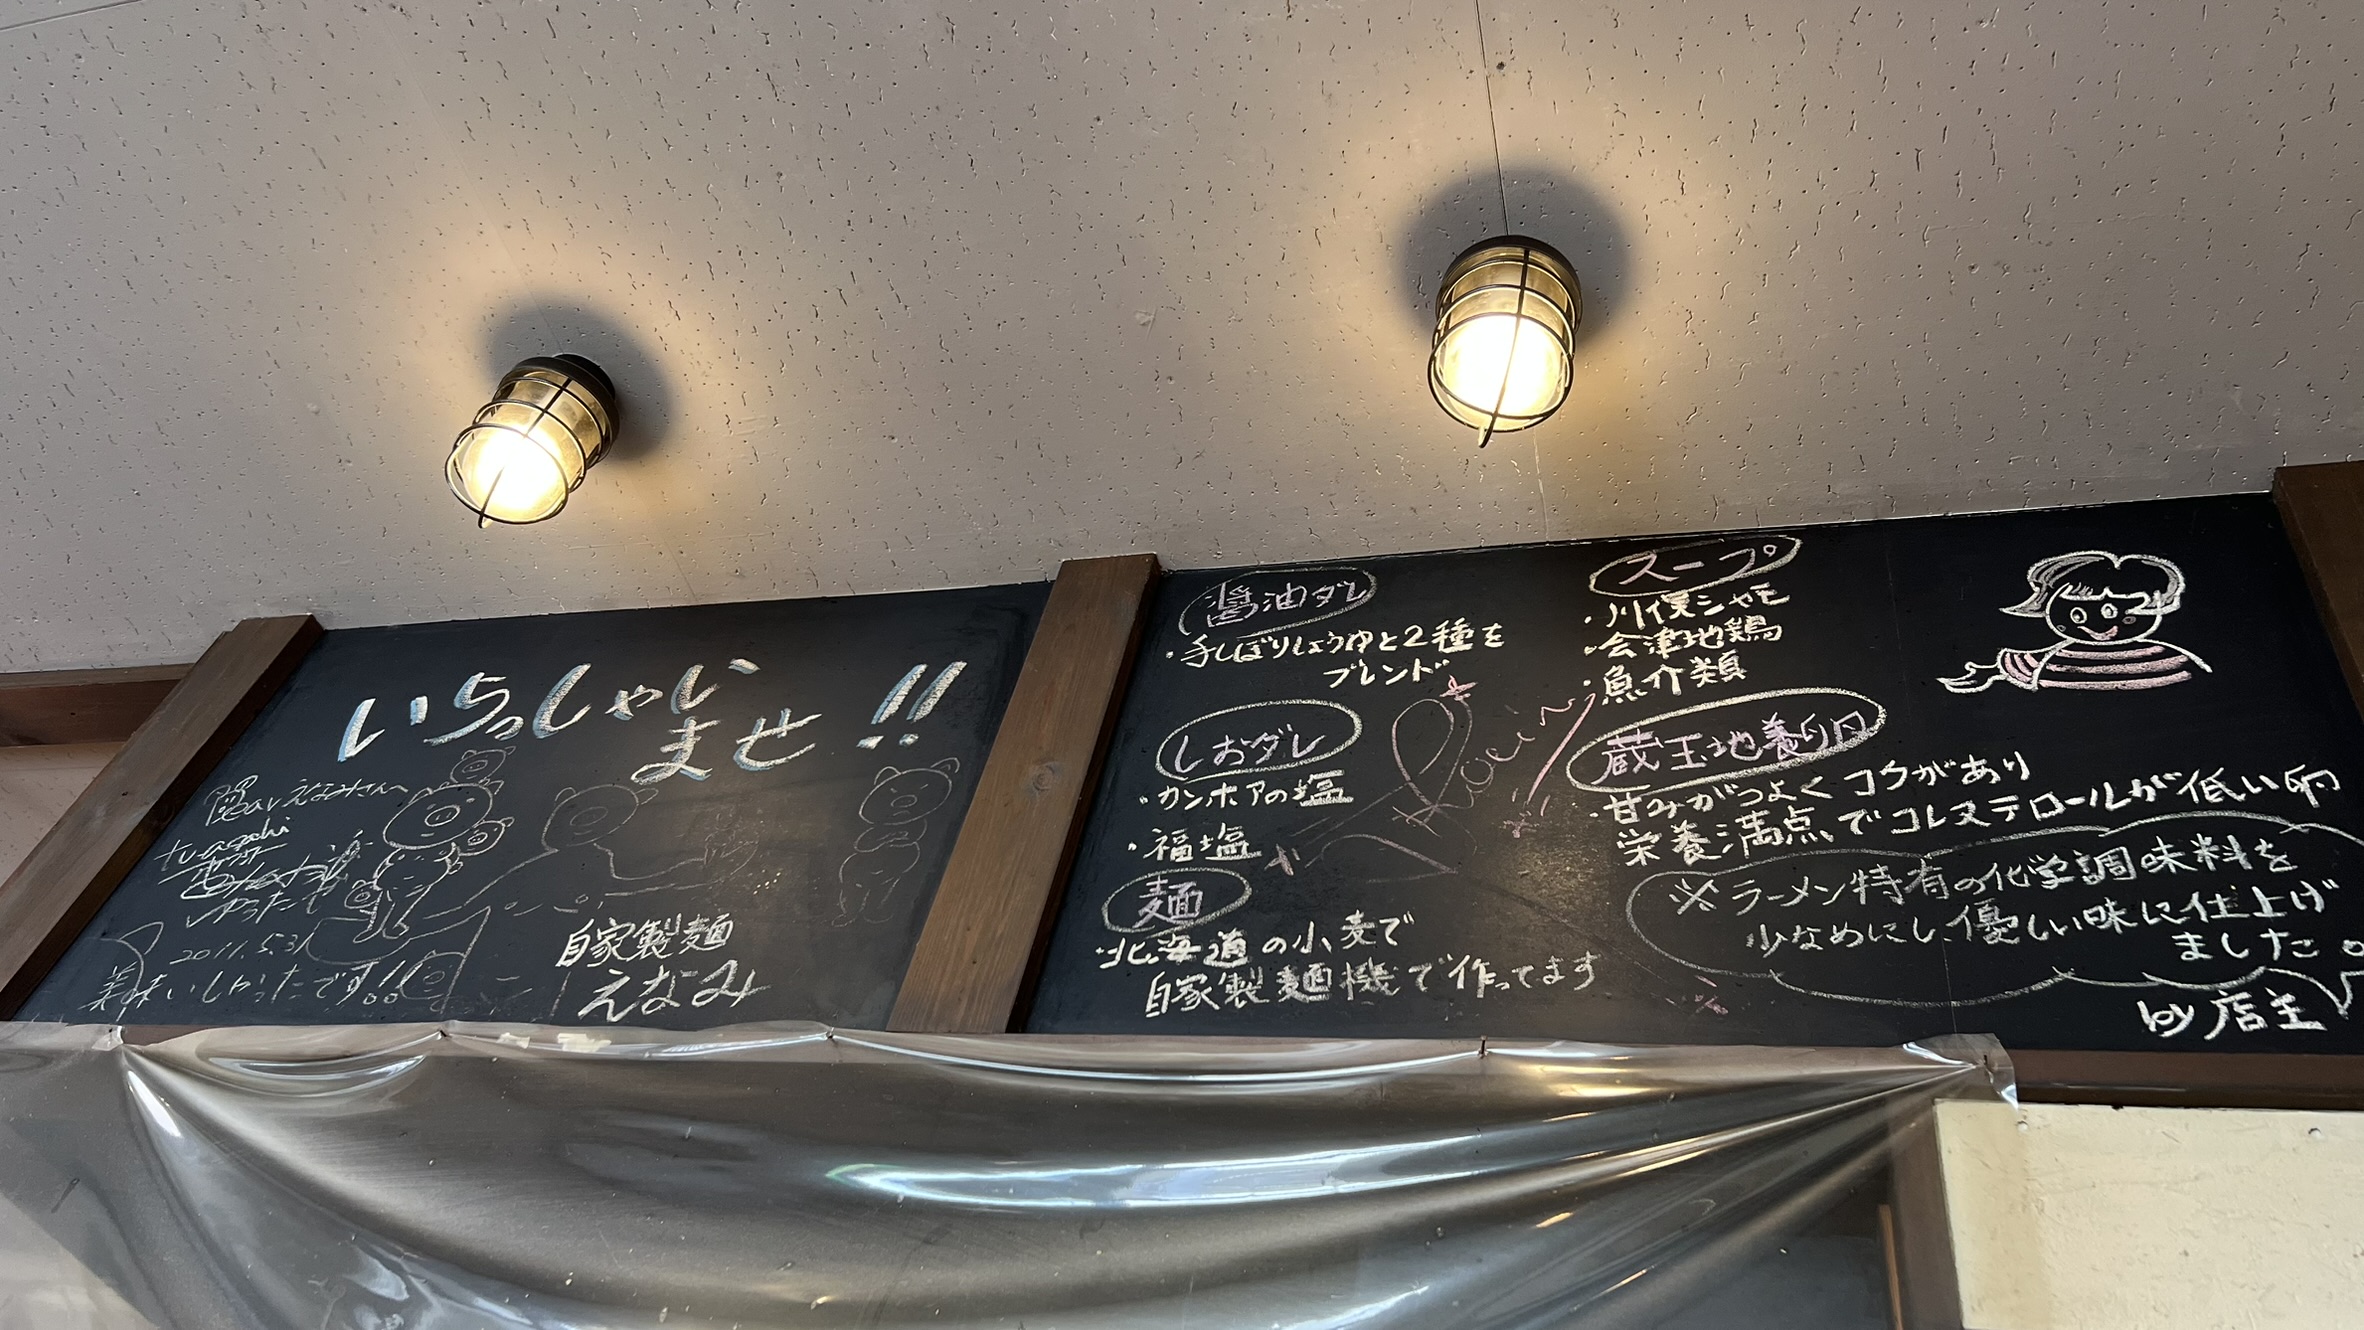 いらっしゃい
ませ!!
麺ayえなみさんへ
2011.5.31
美味しかったです!!
自家製麺
えなみ
醤油ダレ
・手しぼりしょうゆと2種を
ブレンド
しおダレ
・カンホアの塩
・福塩
麺
・北海道の小麦で
自家製麺機で作ってます
スープ
・川俣シャモ
・会津地鶏
・魚介類
蔵王地養卵
・甘みがつよくコクがあり
栄養満点でコレステロールが低い卵
※ラーメン特有の化学調味料を
少なめにし、優しい味に仕上げ
ました。
by店主